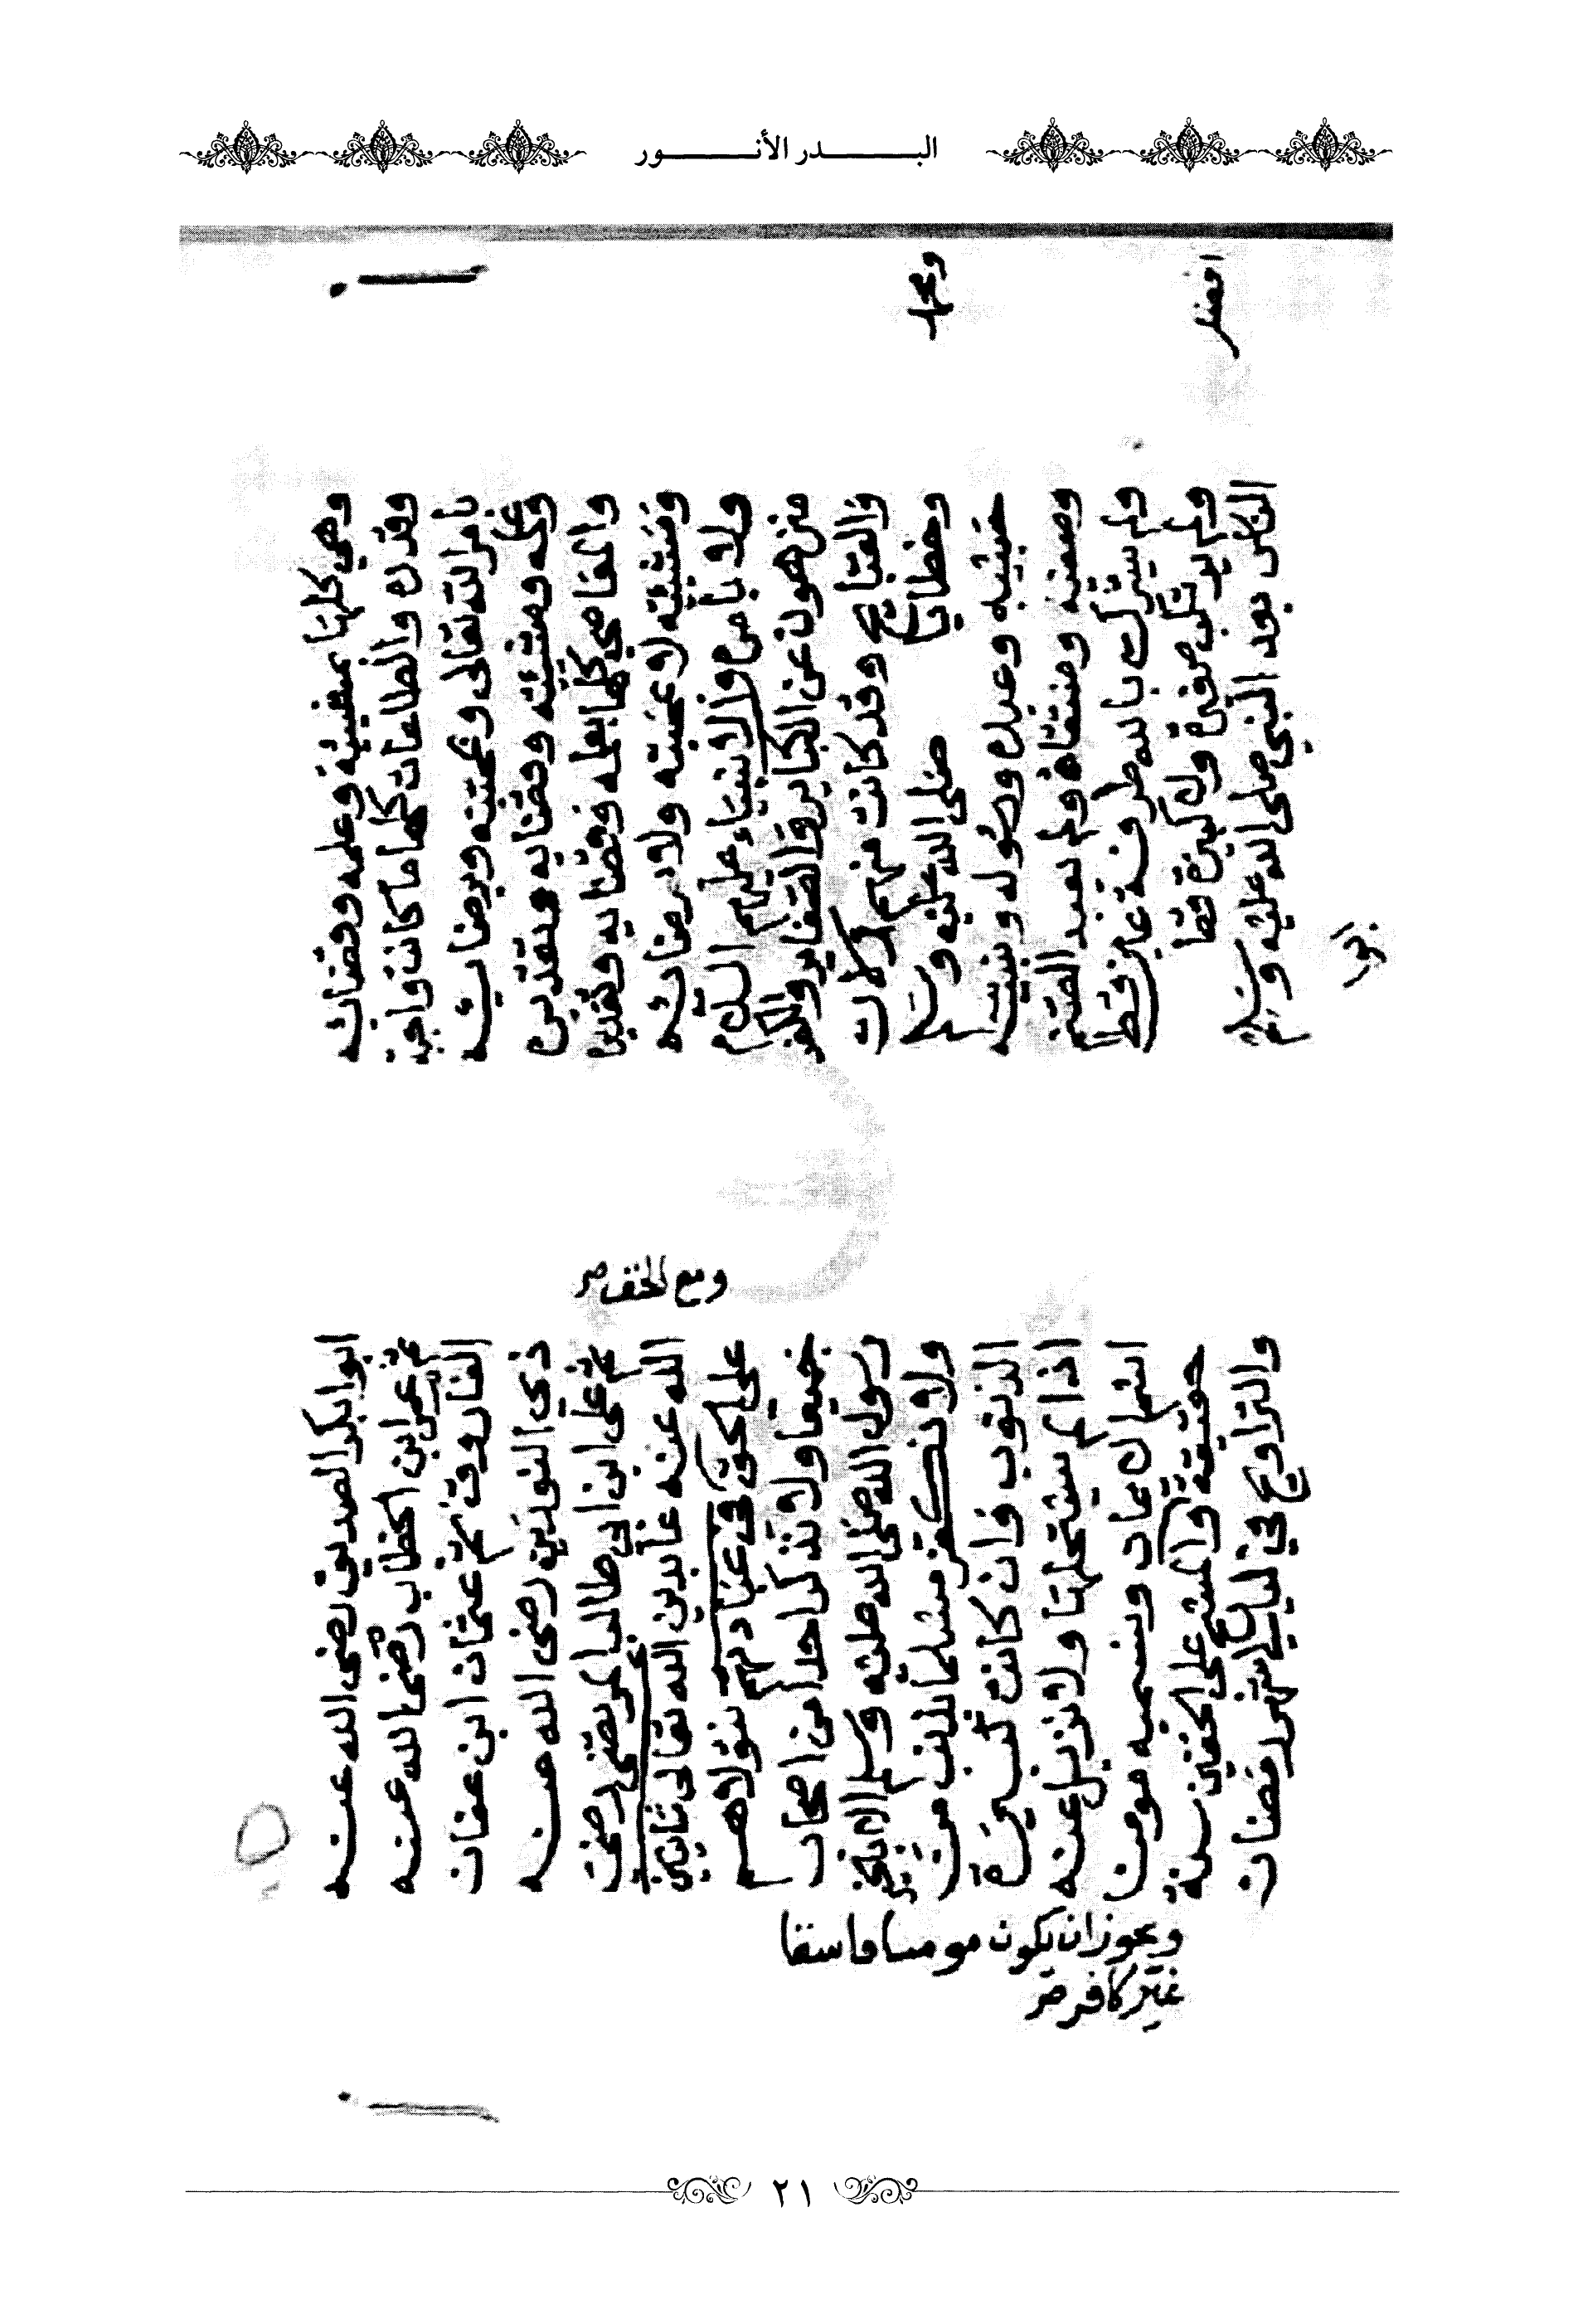 البـــدر الأنـــور
وهي كلها بمشيئته وعلمه وقضائه
وقدره والطاعات كلها ما كانت واجبة
بامر الله تعالى وبمحبته وبرضائه
وعلمه ومشيئته وقضائه وتقديره
والمعاصي كلها بعلمه وقضائه وتقديره
ومشيئته لا بمحبته ولا برضائه
ولا بامره والانبياء عليهم السلام
منزهون عن الكبائر والصغائر والكفر
والقبائح وقد كانت منهم زلات
وخطايا
ومحمد
صلى الله عليه وسلم
حبيبه وعبده ورسوله ونبيه
وصفيه ومنتقاه ولم يعبد الصنم
ولم يشرك بالله طرفة عين قط
ولم يرتكب صغيرة ولا كبيرة قط
افضل
الناس بعد النبي صلى الله عليه وسلم
ابو
ابو بكر الصديق رضى الله عنه
ثم عمر ابن الخطاب رضى الله عنه
الفاروق ثم عثمان ابن عفان
ذى النورين رضى الله عنه
ثم على ابن ابي طالب المرتضى رضى
الله عنه عابدين الله تعالى ثابتين
على الحق
ومع الحق صر
عبادتهم نتولاهم
جميعا ولا نذكر احدا من اصحاب
رسول الله صلى الله عليه وسلم الا بخير
ولا نكفر مسلما بذنب من
الذنوب وان كانت كبيرة
اذا لم يستحلها ولا نزيل عنه
اسم الايمان ونسميه مومنا
حقيقة
ويجوز ان يكون مومنا فاسقا
غير كافر صر
والمسح على الخفين سنة
والتراويح في ليالي شهر رمضان
٢١